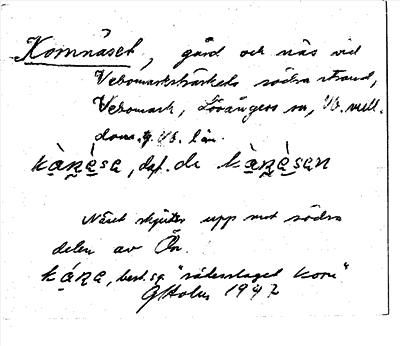 Kornnäset, gård och näs vid
Vebomarksträskets södra strand,
Vebomark, Lövångers sn, Vb. mell.
doms. o. Vb. län.
kàn̥è̥sa, daf. de kàn̥è̥sen
Näset skjuter upp mot södra
delen av Ön.
káṇa, best. sg. "sädesslaget korn"
G Holm 1947